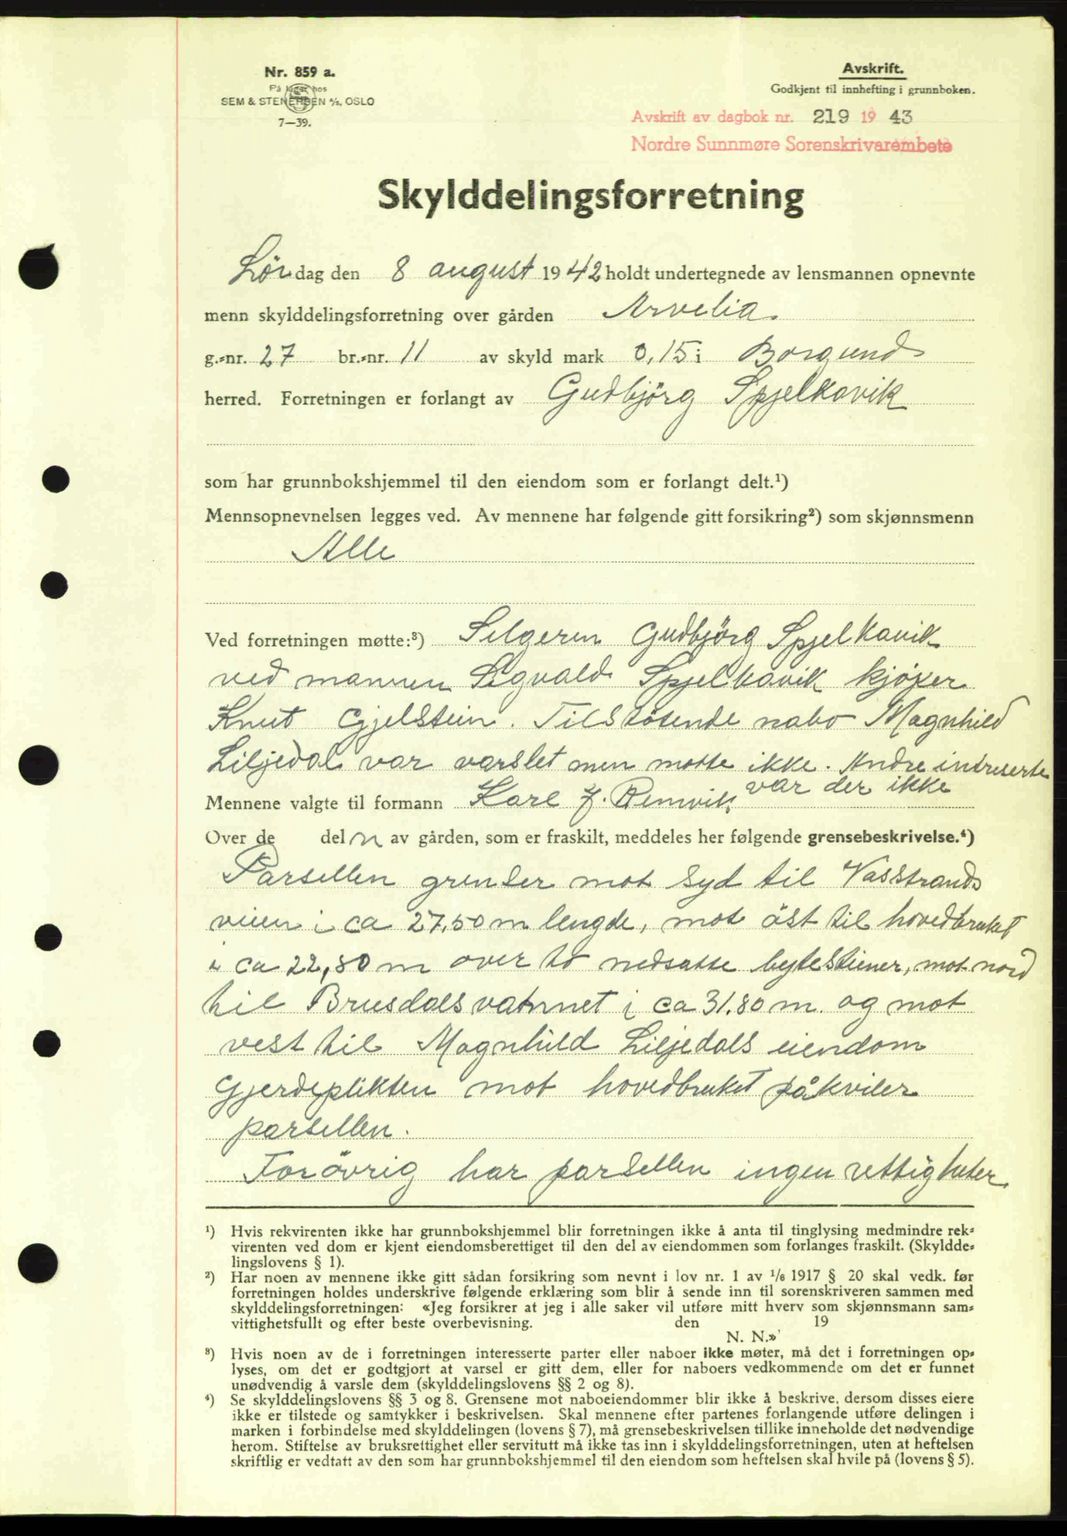 Nr. 859 a.
På lager hos
SEM & STENERSEN A/S, OSLO
7—39.
Avskrift.
Godkjent til innhefting i grunnboken.
Avskrift av dagbok nr. 219 19 43
Nordre Sunnmøre Sorenskrivarembete
Skylddelingsforretning
Lørdag den 8 august 1942 holdt undertegnede av lensmannen opnevnte
menn skylddelingsforretning over gården Arvelia.
g.-nr. 27 br.-nr. 11 av skyld mark 0,15 i Borgund
herred. Forretningen er forlangt av Gudbjörg Spjelkavik
som har grunnbokshjemmel til den eiendom som er forlangt delt.¹)
Mennsopnevnelsen legges ved. Av mennene har følgende gitt forsikring²) som skjønnsmenn
Alle
Ved forretningen møtte:³) Selgeren Gudbjörg Spjelkavik
ved mannen Sigvald Spjelkavik kjöper
Knut Gjelstein. Tilstötende nabo Magnhild
Liljedal var varslet men motte ikke. Andre intreserte
var der ikke
Mennene valgte til formann Karl J. Remvik.
Over de del n av gården, som er fraskilt, meddeles her følgende grensebeskrivelse.⁴)
Parsellen grenser mot syd til Vasstrands
veien i ca 27,50 m lengde, mot öst til hovedbruket
i ca 22,80 m over to nedsatte bytesteiner, mot nord
til Brusdalsvatnnet i ca 31.80 m. og mot
vest til Magnhild Liljedals eiendom
Gjerdeplikten mot hovedbruket påkviler
parsellen.
Forövrig har parsellen ingen rettigheter
¹) Hvis rekvirenten ikke har grunnbokshjemmel blir forretningen ikke å anta til tinglysing medmindre rek-
virenten ved dom er kjent eiendomsberettiget til den del av eiendommen som forlanges fraskilt. (Skyldde-
lingslovens § 1).
²) Har noen av mennene ikke gitt sådan forsikring som nevnt i lov nr. 1 av 1/6 1917 § 20 skal vedk. før
forretningen holdes underskrive følgende erklæring som blir å sende inn til sorenskriveren sammen med
skylddelingsforretningen: «Jeg forsikrer at jeg i alle saker vil utføre mitt hverv som skjønnsmann sam-
vittighetsfullt og efter beste overbevisning. den 19
N. N.»
³) Hvis noen av de i forretningen interesserte parter eller naboer ikke møter, må det i forretningen op-
lyses, om det er godtgjort at varsel er gitt dem, eller for naboers vedkommende om det er funnet
unødvendig å varsle dem (skylddelingslovens §§ 2 og 8).
⁴) Se skylddelingslovens §§ 3 og 8. Grensene mot naboeiendommer blir ikke å beskrive, dersom disses eiere
ikke er tilstede og samtykker i beskrivelsen. Skal mennene efter partenes forlangende utføre delingen i
marken i forbindelse med skylddelingen (lovens § 7), må grensebeskrivelsen tillike inneholde det nødvendige
herom. Stiftelse av bruksrettighet eller servitutt må ikke tas inn i skylddelingsforretningen, uten at heftelsen
skriftlig er vedtatt av den som har grunnbokshjemmel til den eiendom som heftelsen skal hvile på (lovens § 5).